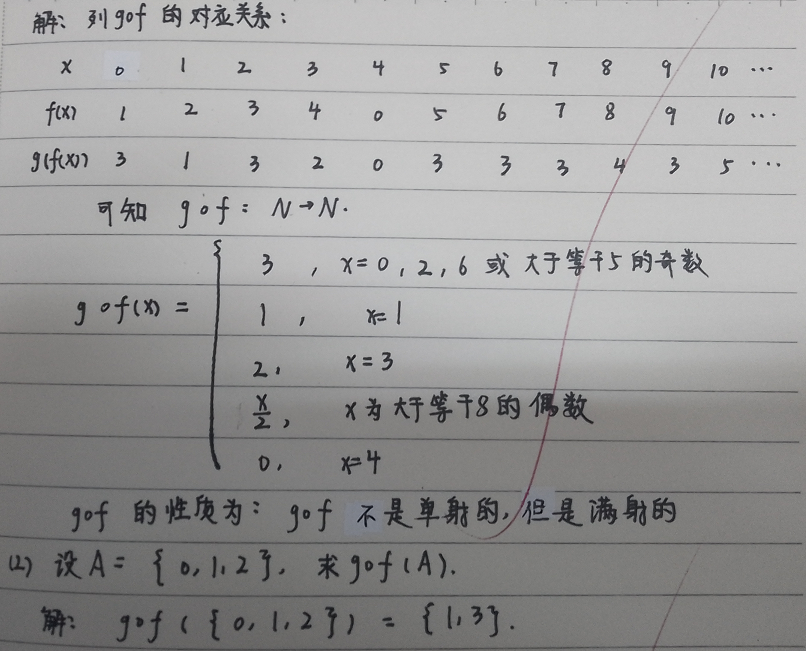 解: 列gof 的对应关系:
x 0 1 2 3 4 5 6 7 8 9 10 ⋯
f(x) 1 2 3 4 0 5 6 7 8 9 10 ⋯
g(f(x)) 3 1 3 2 0 3 3 3 4 3 5 ⋯
可知 gof: N→N.
3 , x=0,2,6 或 大于等于5的奇数
gof(x) = {
1 , x=1
2, x=3
x/2, x为大于等于8的偶数
0, x=4
gof 的性质为: gof 不是单射的, 但是满射的
(2) 设A= {0,1,2}, 求gof(A).
解: gof({0,1,2}) = {1,3}.